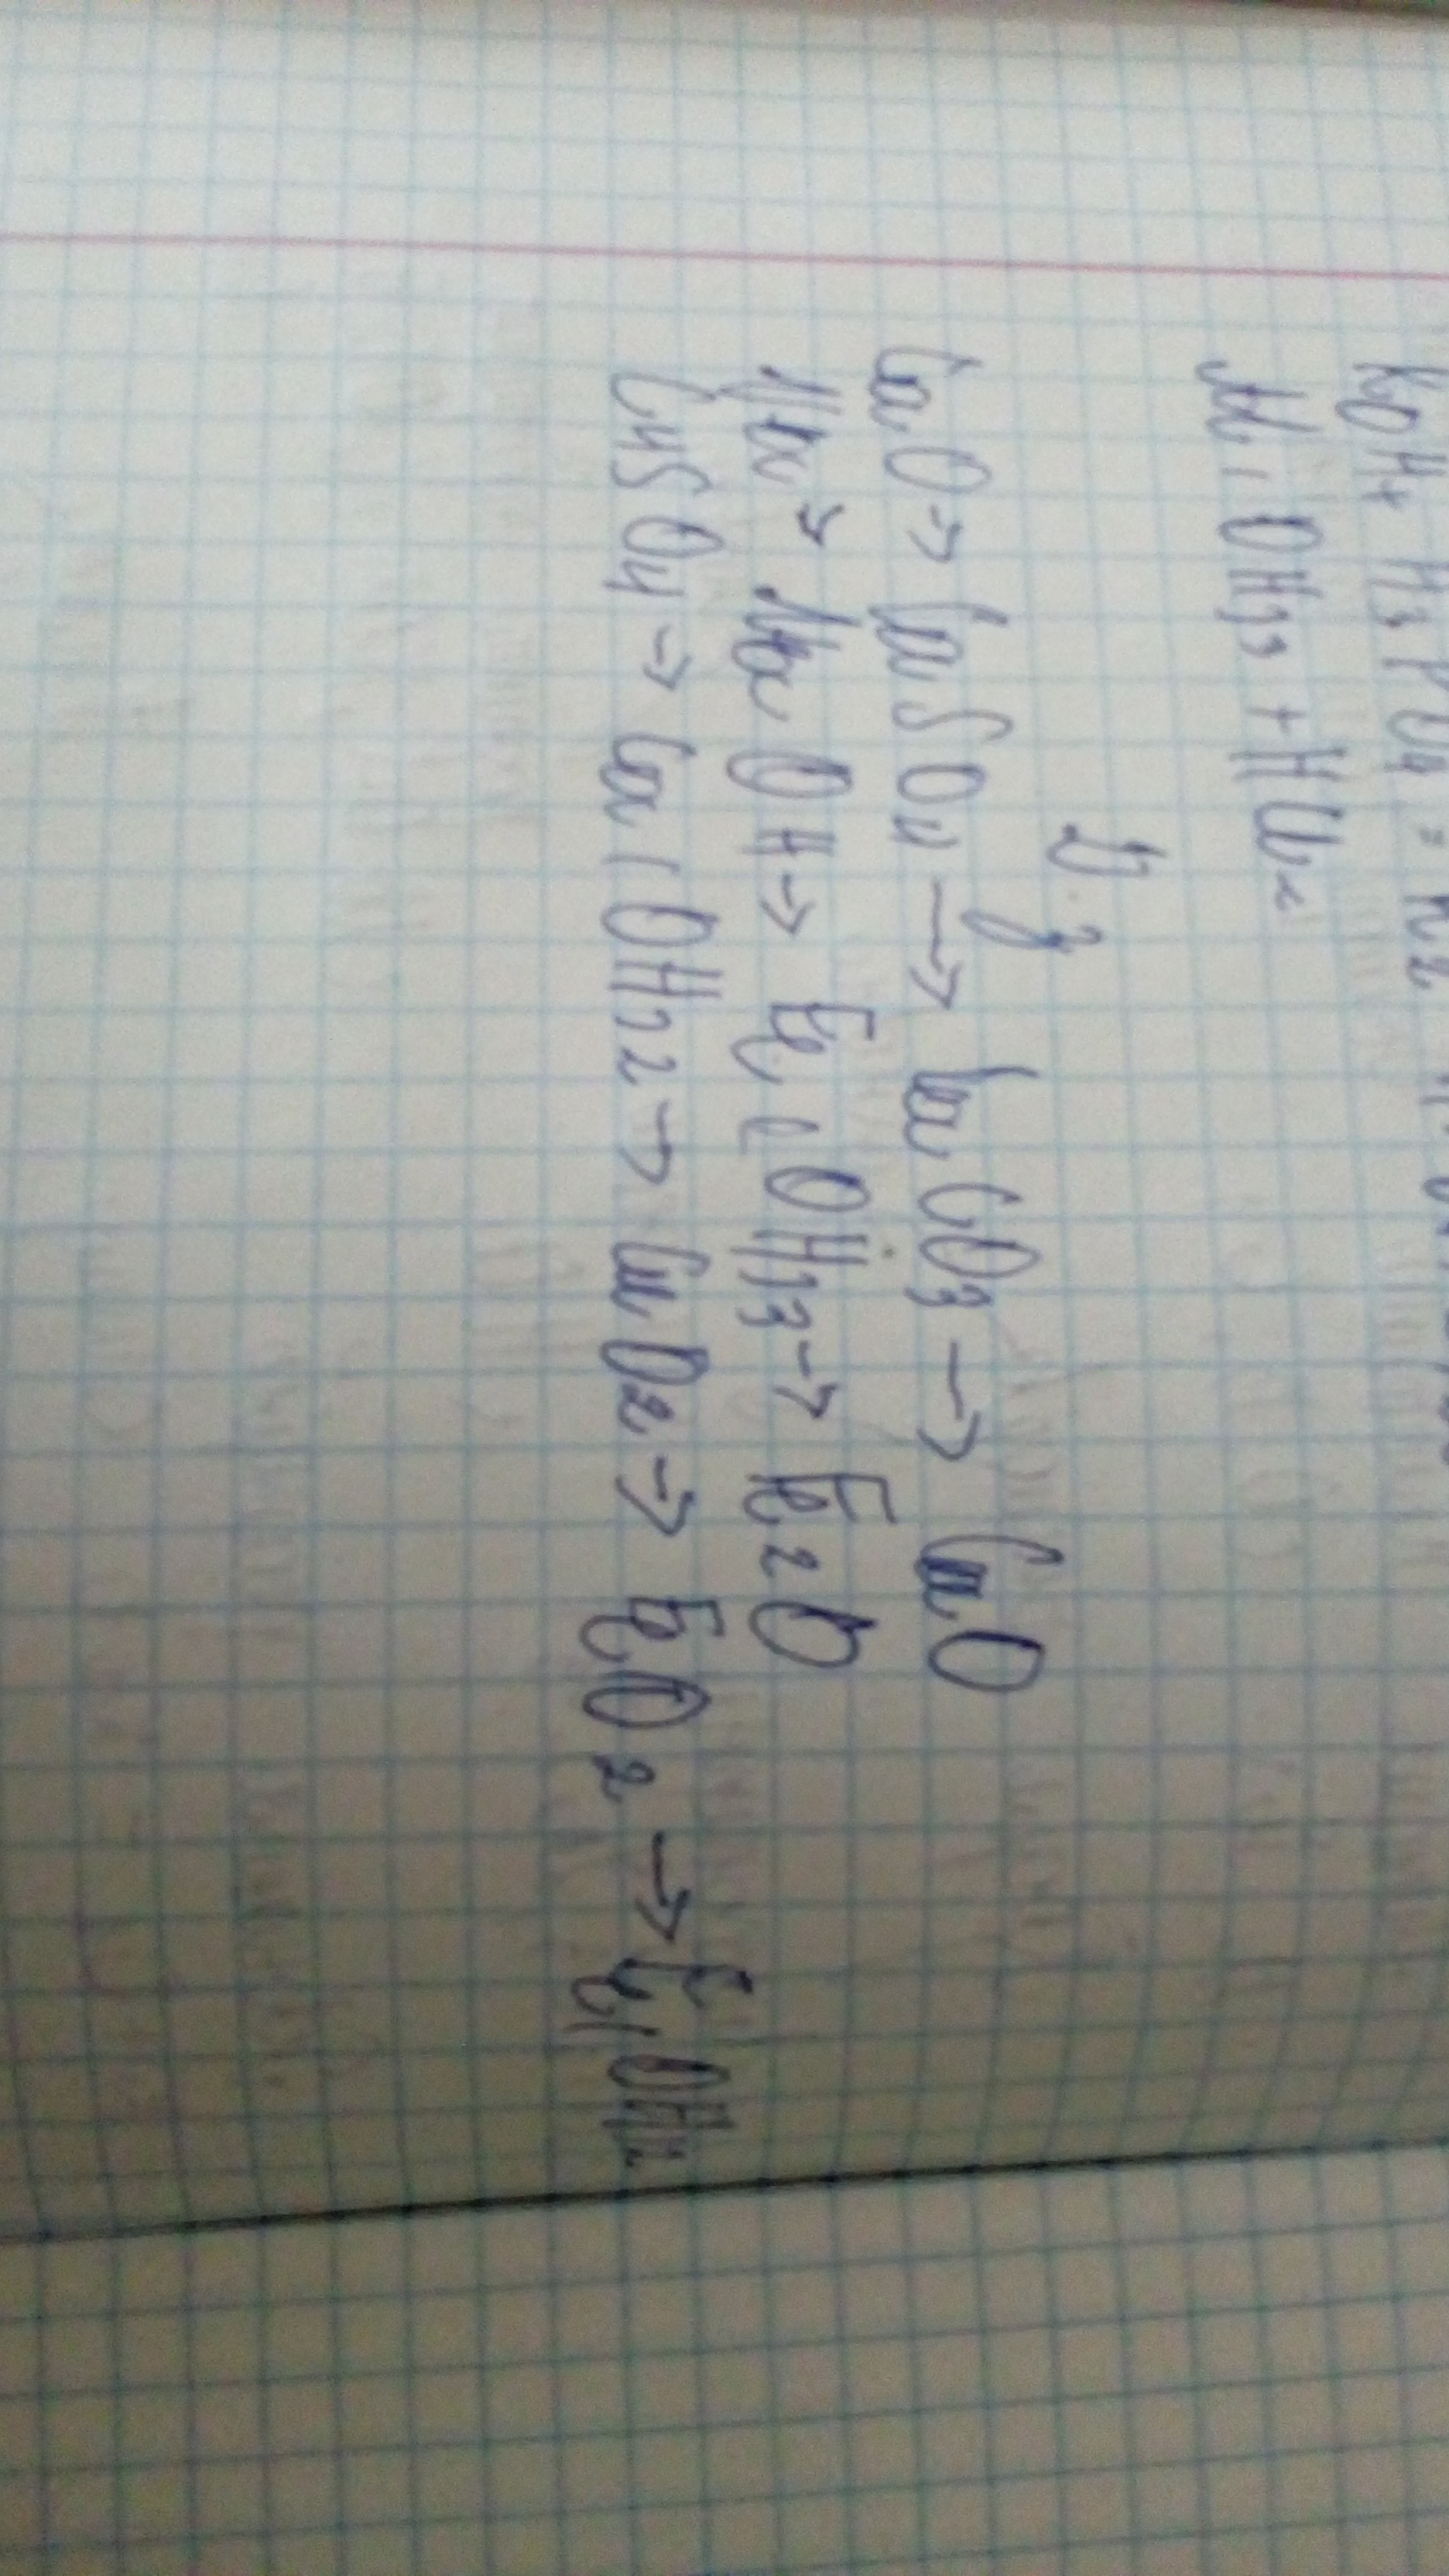 KOH + H3PO4 = K2
Al(OH)3 + HCl =
Д.З
CaO → CaSO4 → CaCO3 → CaO
Na → NaOH → Fe(OH)3 → Fe2O
CuSO4 → Ca(OH)2 → CuO2 → FeO2 → Fe(OH)2